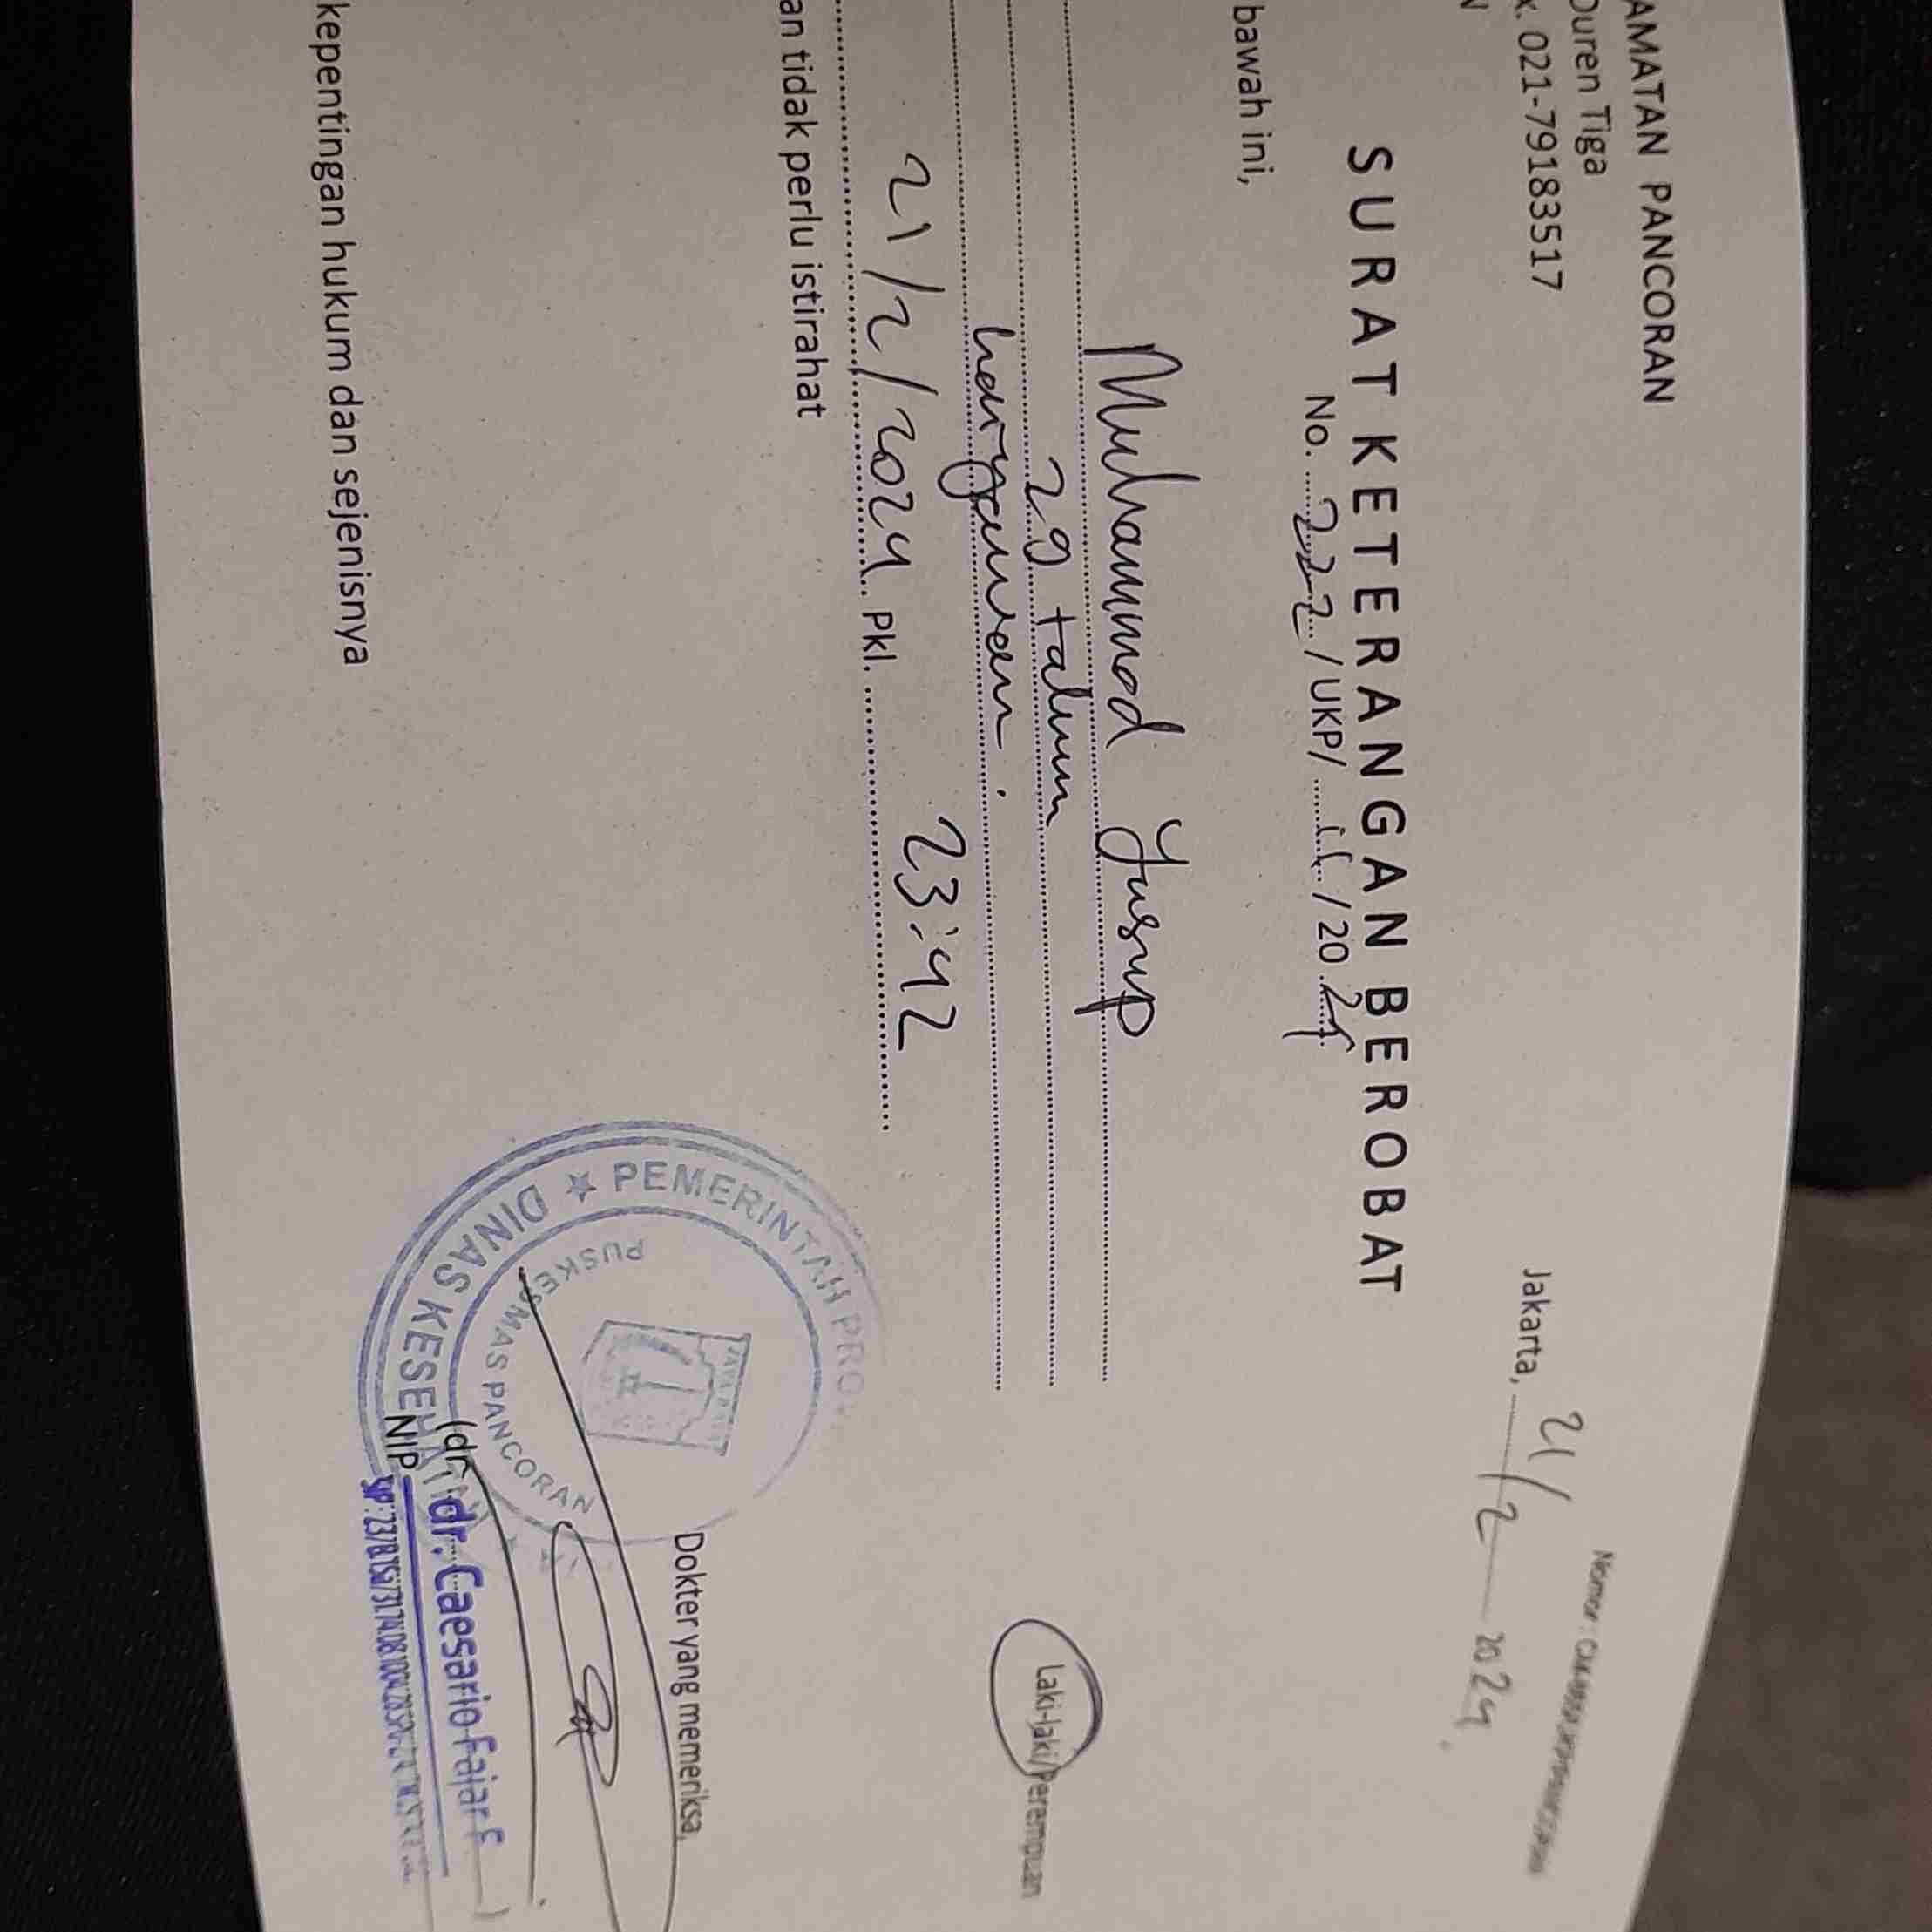 AMATAN PANCORAN
Duren Tiga
x. 021-79183517
N
Nomor :
Jakarta, 21/2 2024
SURAT KETERANGAN BEROBAT
No. 222 / UKP/ II / 20 24
bawah ini,
Muhammad Yusup
29 tahun Laki-laki/Perempuan
karyawan.
21/2/2024 Pkl. 23:42
an tidak perlu istirahat
Dokter yang memeriksa,
PEMERINTAH PROV
DINAS KESEHATAN
PUSKESMAS PANCORAN
JAYA RAYA
(dr. dr. Caesario Fajar F )
NIP
kepentingan hukum dan sejenisnya